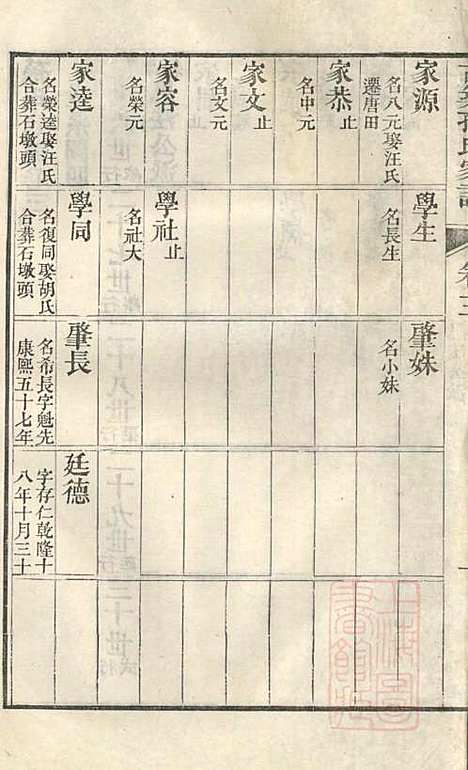 家源
名八元娶汪氏
遷唐田
家恭止
名中元
家文止
名文元
家容
名榮元
家逵
名榮逵娶汪氏
合葬石墩頭
學生
名長生
學社止
名社大
學同
名復同娶胡氏
合葬石墩頭
肇姝
名小妹
肇長
名希長字魁先
康熙五十七年
廷德
字存仁乾隆十
八年十月三十